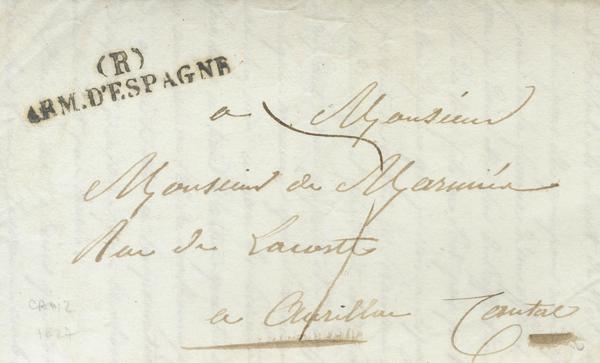 (R)
ARM. D'ESPAGNE
a Monsieur
Monsieur de
Rue de Lacoste
a Aurillac Cantal
CADIZ
1827